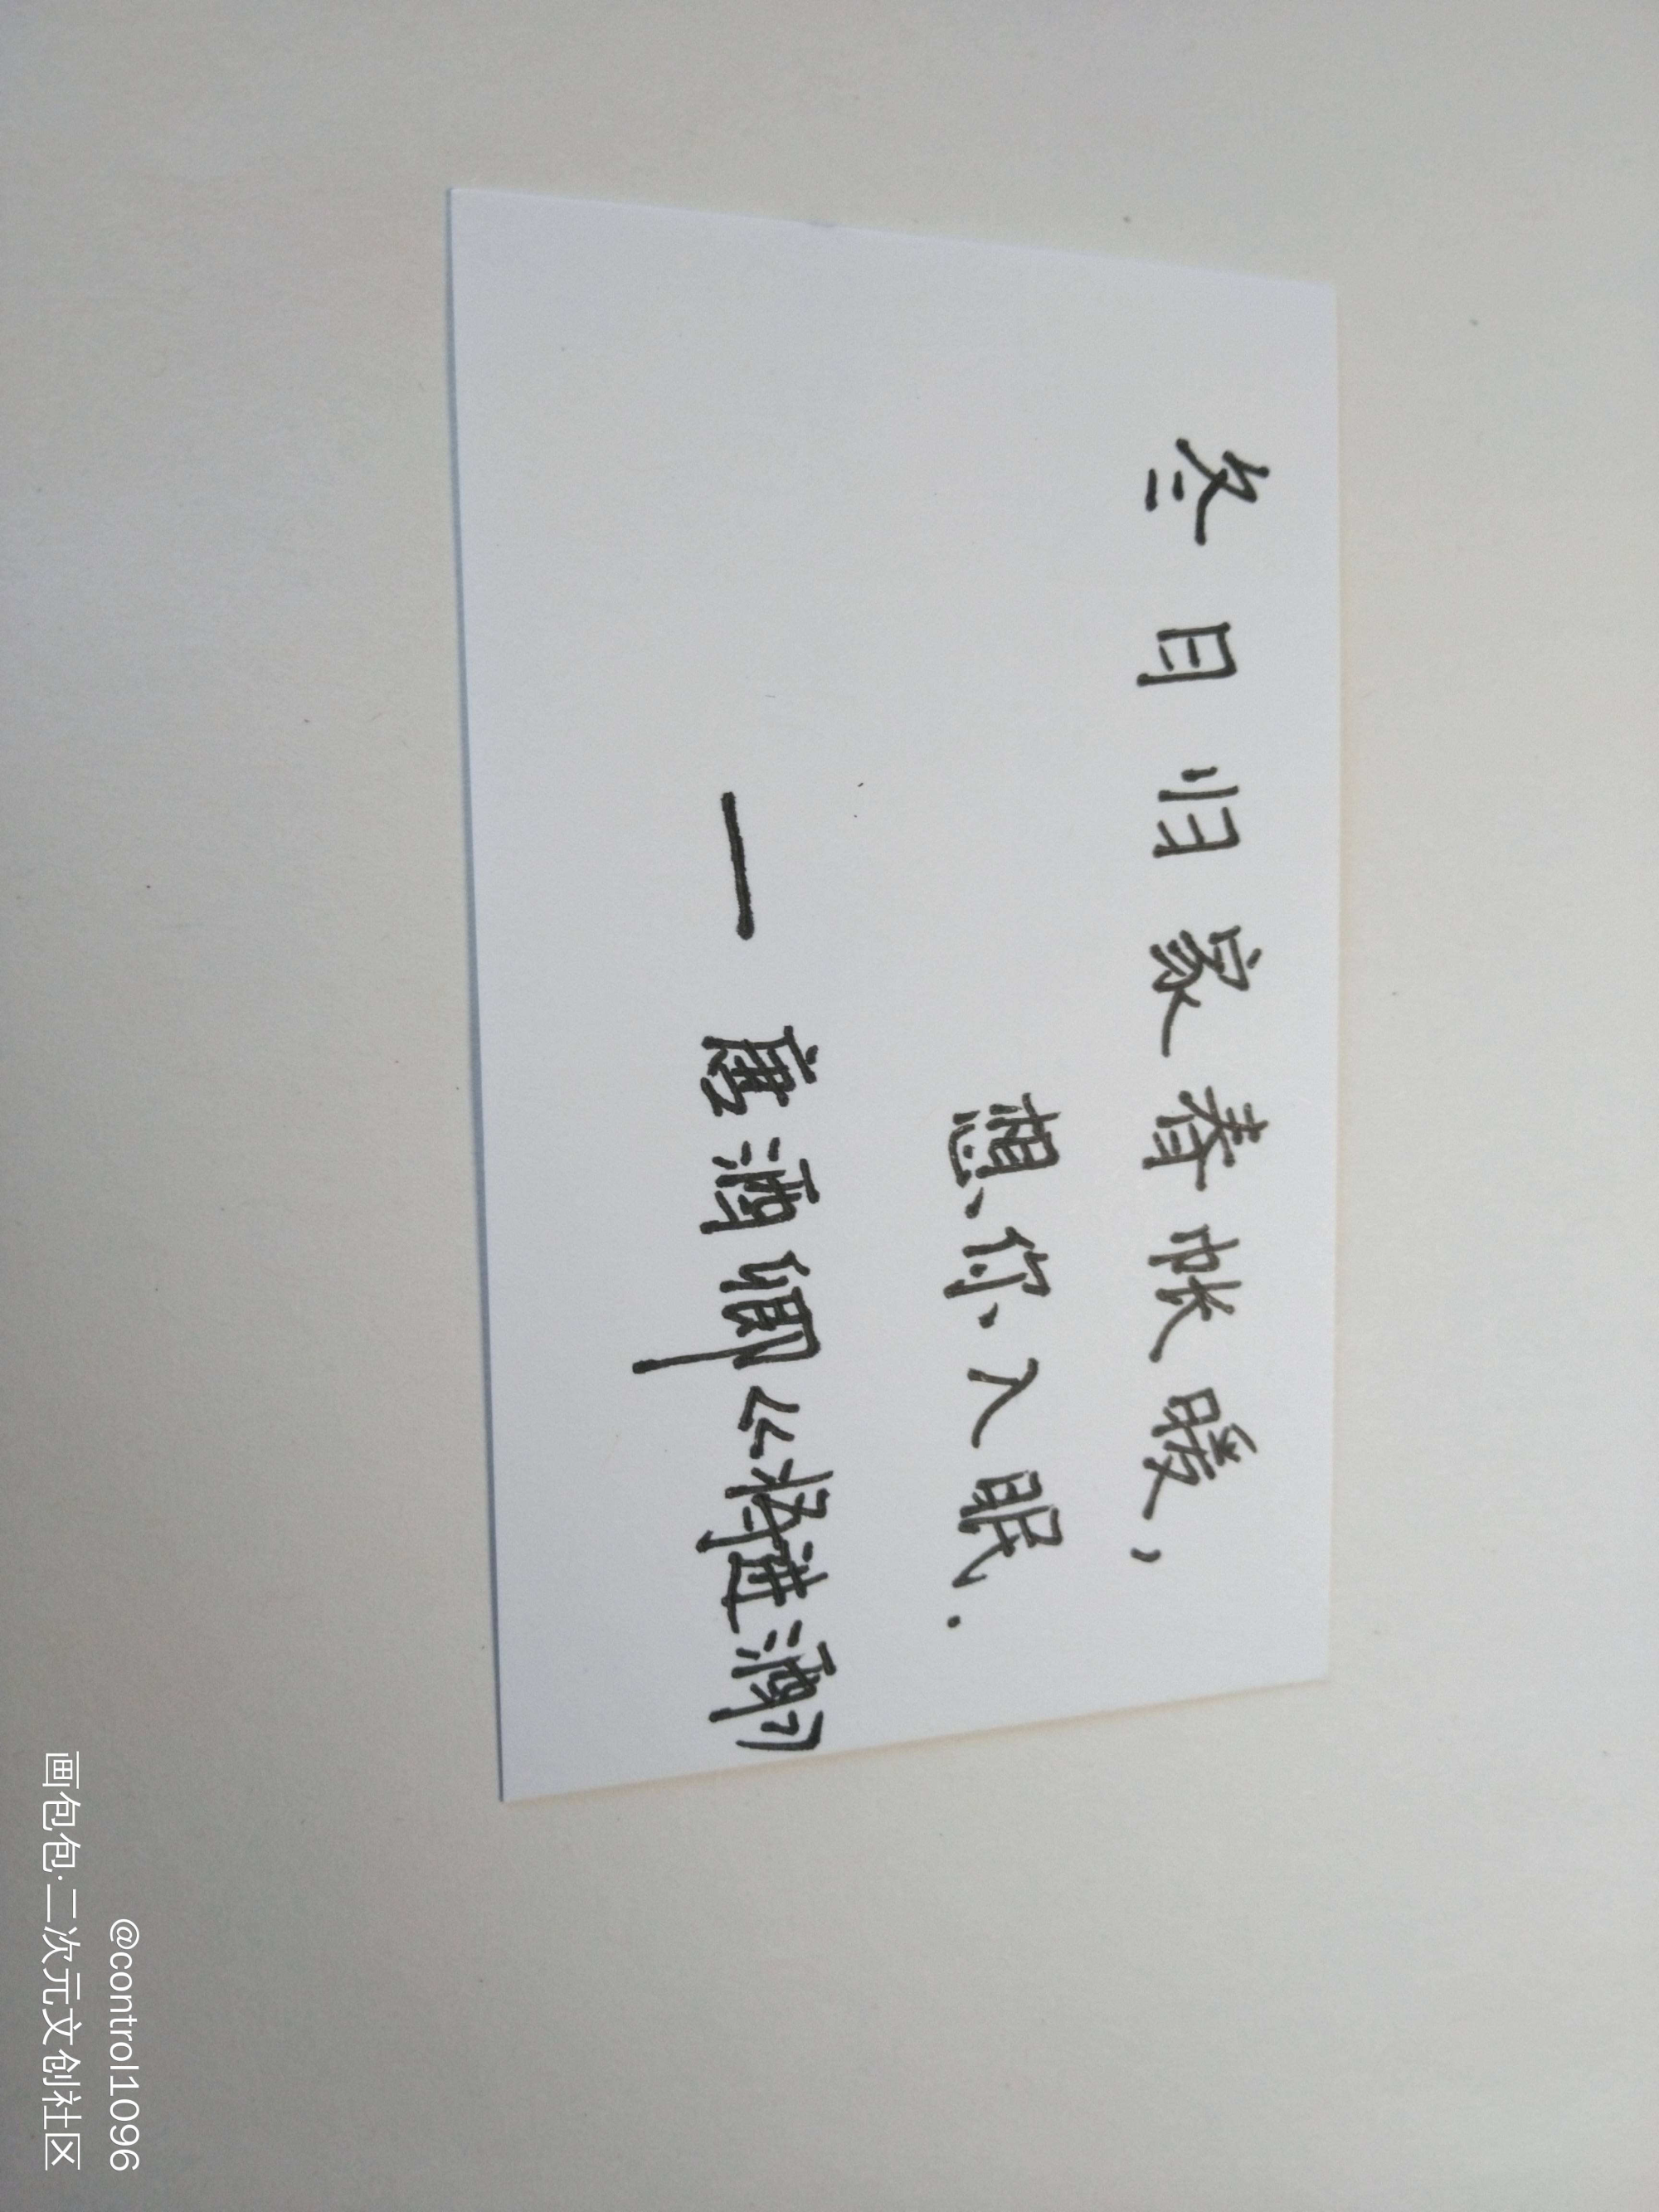 冬日归家春帐暖，
想你入眠.
— 唐酒卿《将进酒》
@control1096
画包包·二次元文创社区